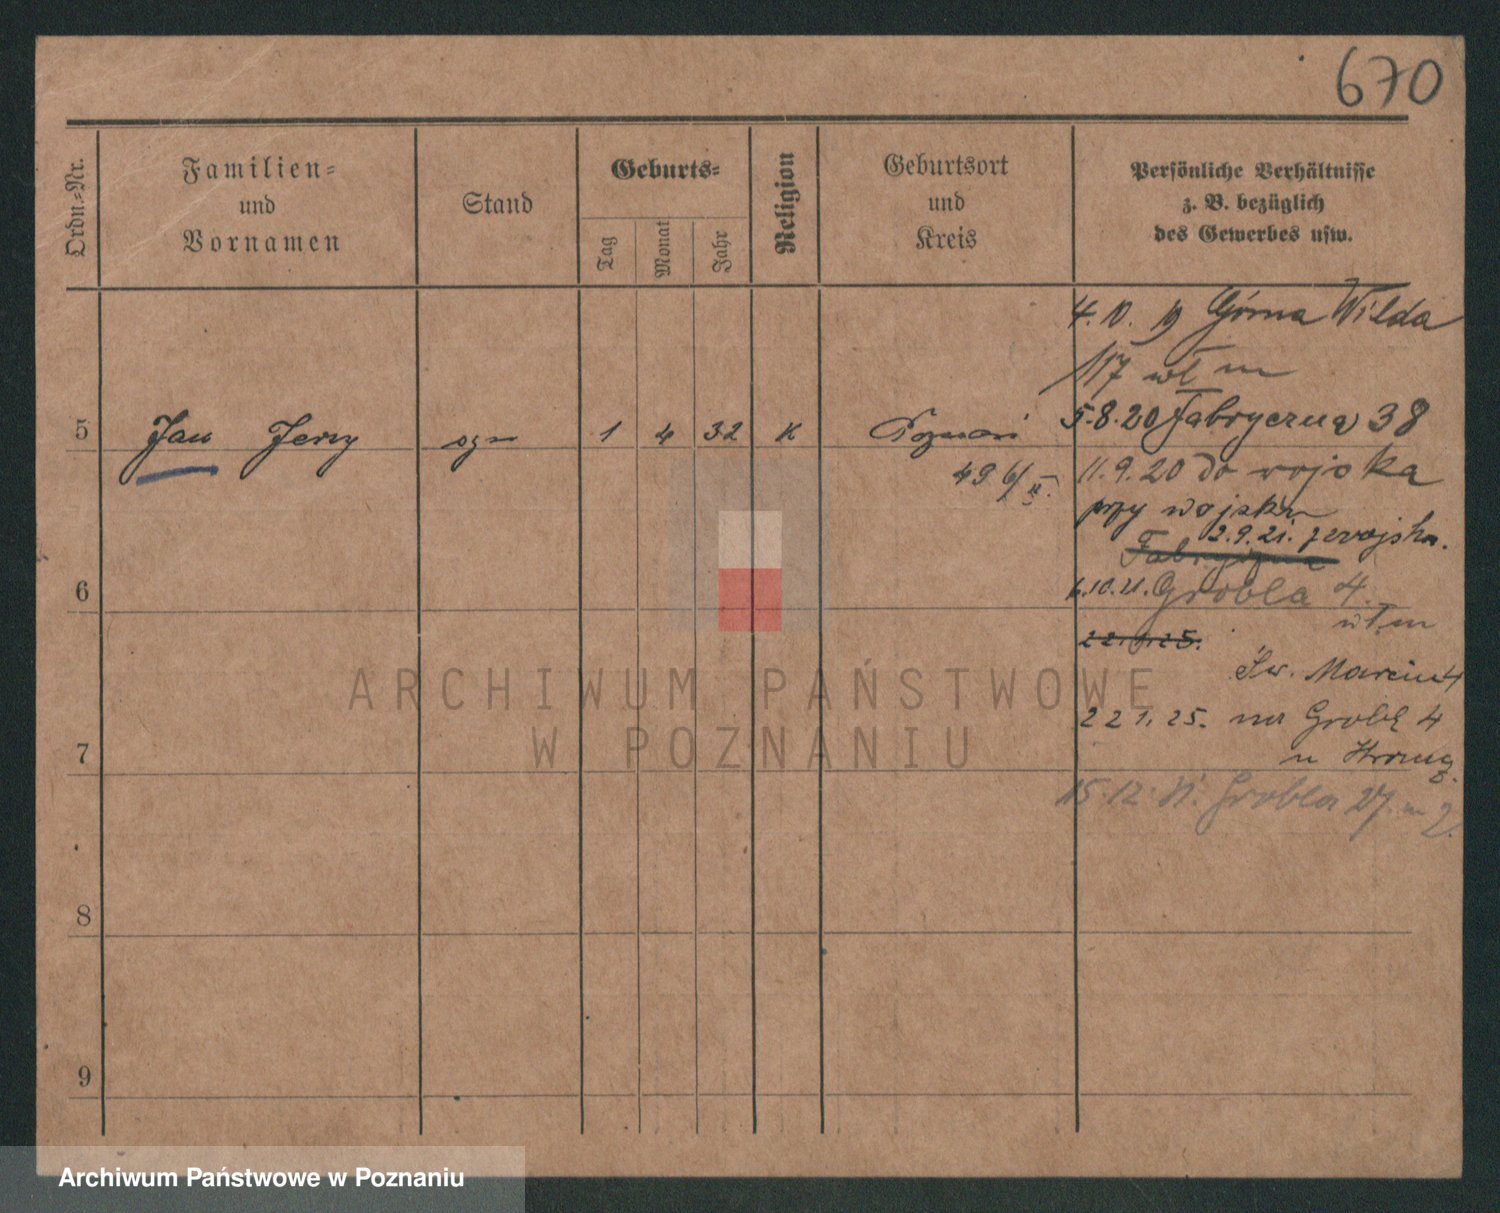 670
Ordn.=Nr.
Familien=
und
Vornamen
Stand
Geburts=
Tag
Monat
Jahr
Religion
Geburtsort
und
Kreis
Persönliche Verhältnisse
z. B. bezüglich
des Gewerbes usw.
4. 10. 19 Górna Wilda
117 wł m
5 Jan Jerzy syn 1 4 32 K Poznań
496/II.
5.8.20 Fabryczna 38
11.9.20 do wojska
przy wojsku
2.9.21. z wojska.
Fabryczna
6
6.10.21. Grobla 4.
wł m
22.1.25.
Św. Marcin
22 1. 25. na Grobli 4
u
7
15.12.31. Grobla 27. m 2.
8
9
ARCHIWUM PAŃSTWOWE
W POZNANIU
Archiwum Państwowe w Poznaniu